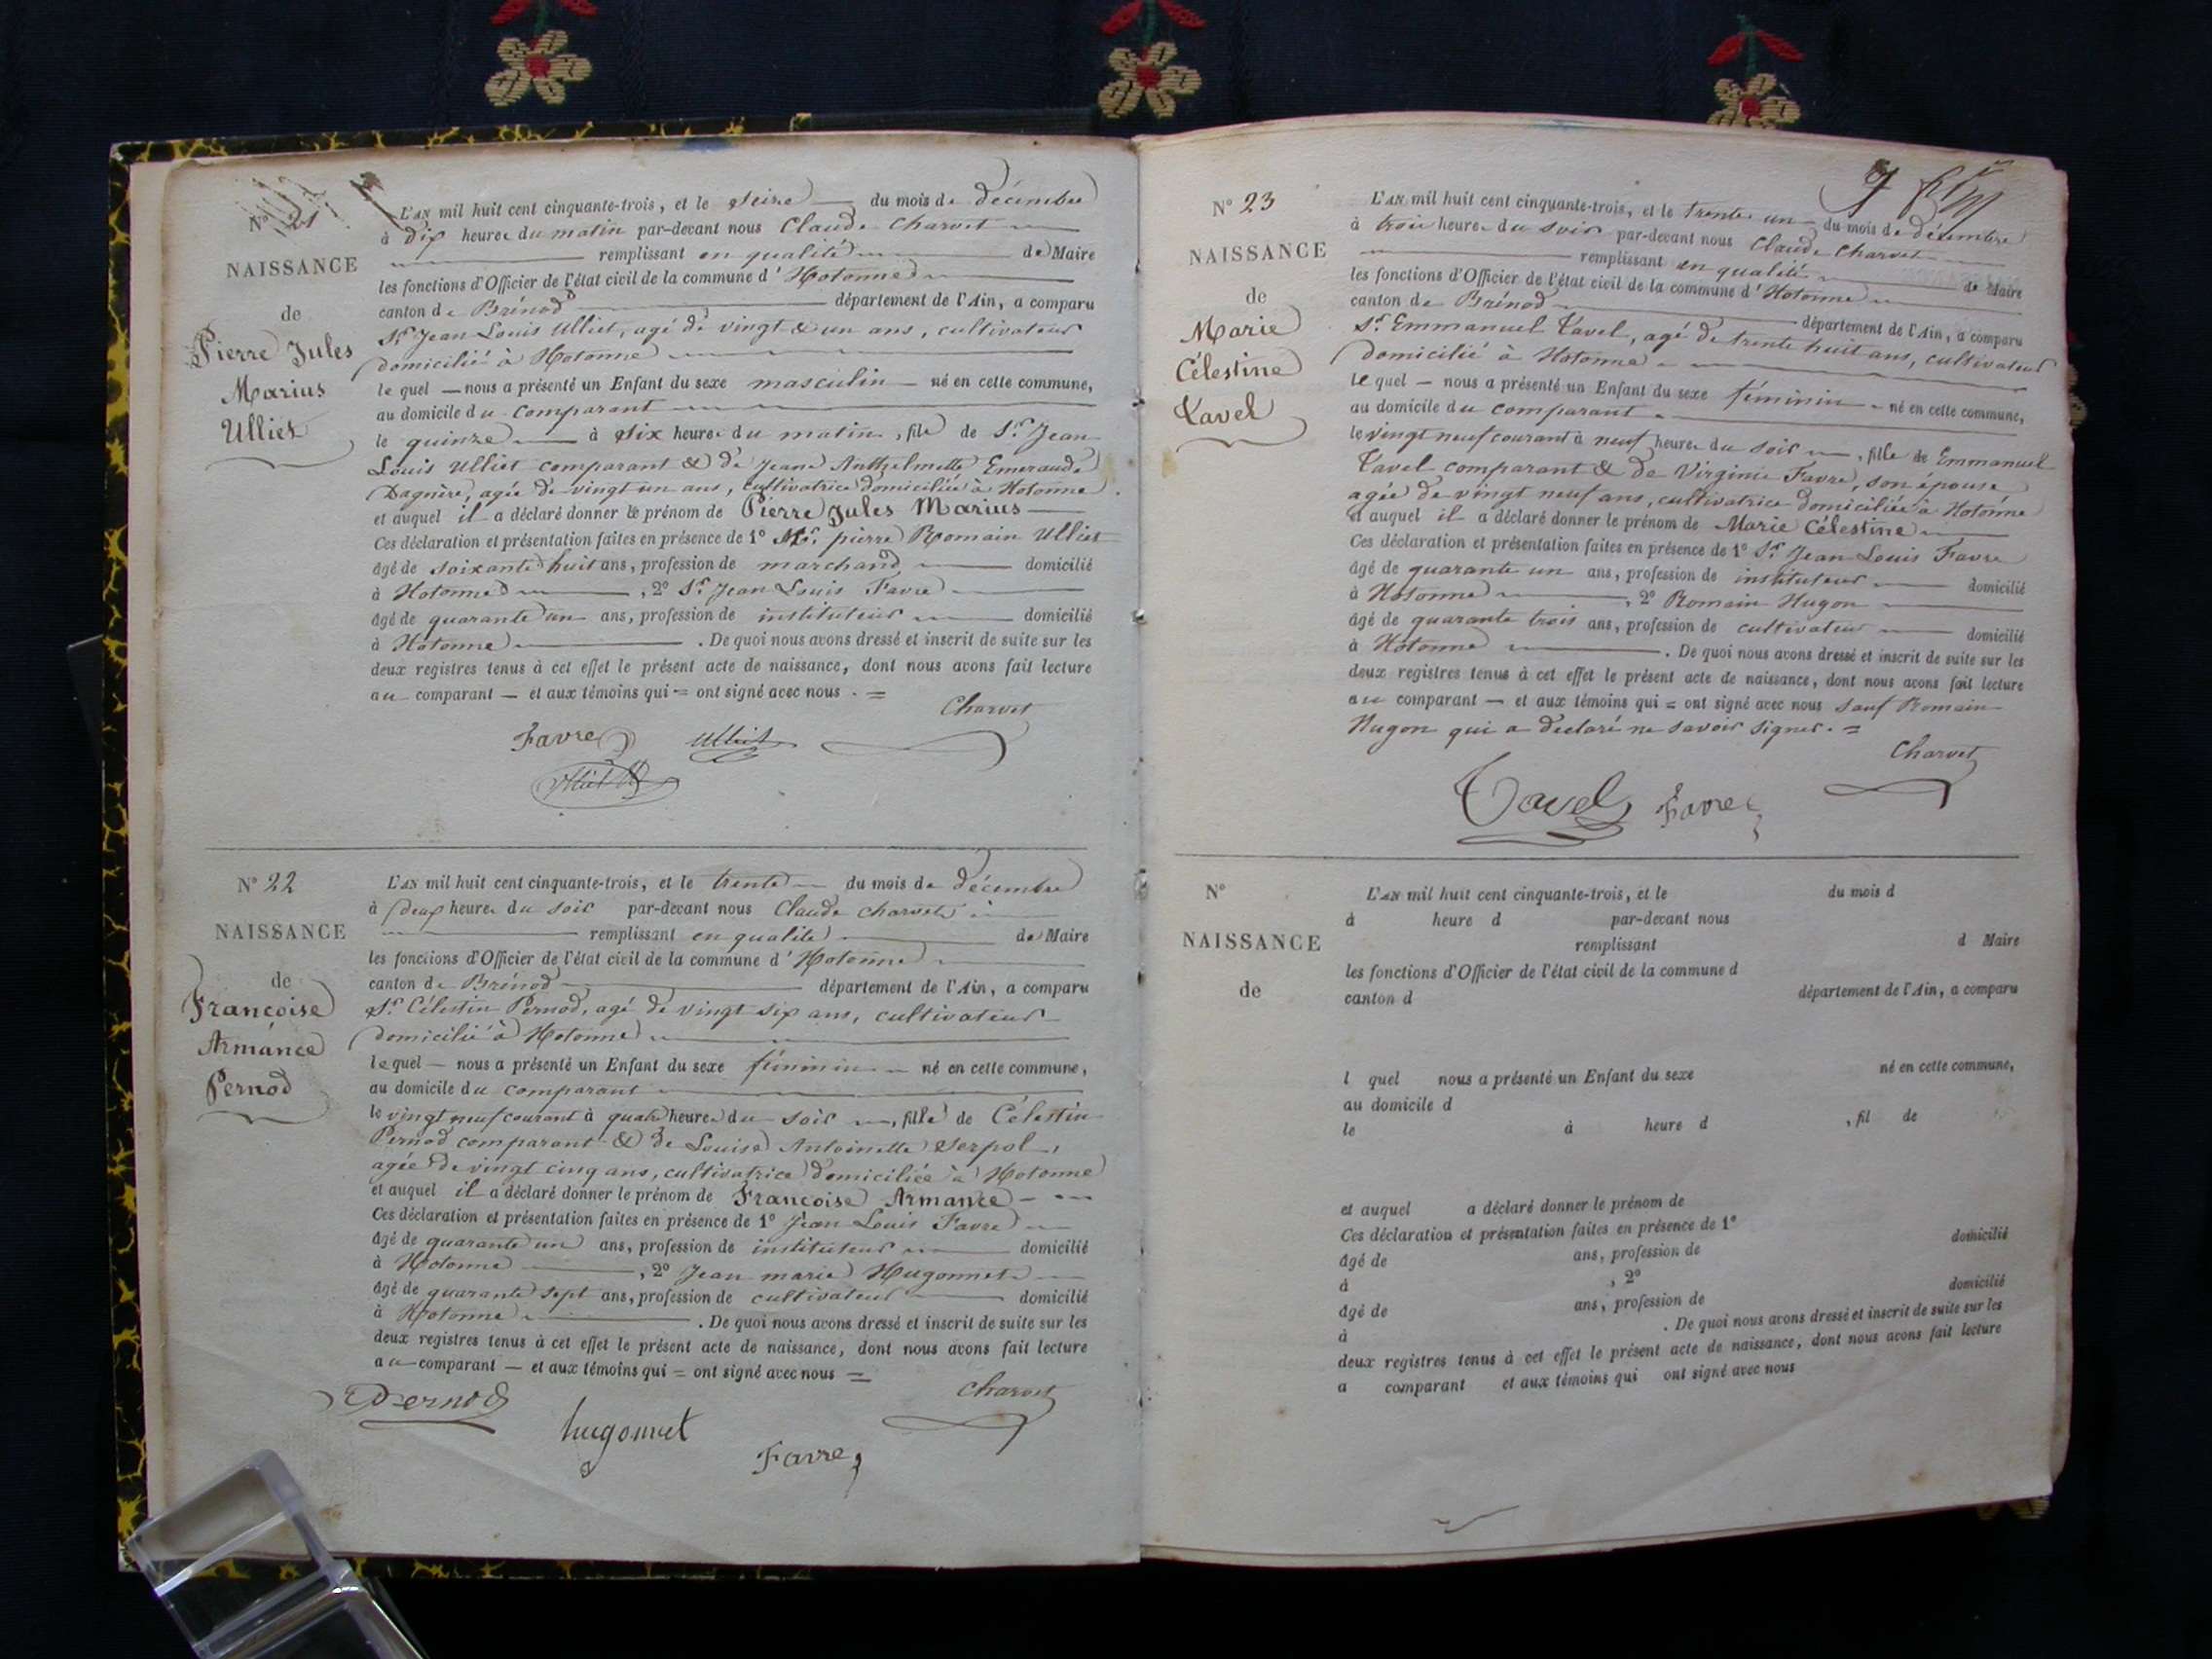 N° 21
NAISSANCE
de
Pierre Jules
Marius
Ulliet
L'AN mil huit cent cinquante-trois, et le seize du mois de décembre
à dix heures du matin par-devant nous Claude Charvet
remplissant en qualité de Maire
les fonctions d'Officier de l'état civil de la commune d'Hotonne
canton de Brénod département de l'Ain, a comparu
Sr Jean Louis Ulliet, agé de vingt & un ans, cultivateur
domicilié à Hotonne
lequel — nous a présenté un Enfant du sexe masculin — né en cette commune,
au domicile du comparant
le quinze à six heures du matin, fils de Sr Jean
Louis Ulliet comparant & de Jeane Anthelmette Emeraude
Dagnère, agée de vingt un ans, cultivatrice domiciliée à Hotonne
et auquel il a déclaré donner le prénom de Pierre Jules Marius —
Ces déclaration et présentation faites en présence de 1° Mr. pierre Romain Ulliet
âgé de soixante huit ans, profession de marchand domicilié
à Hotonne , 2° Sr Jean Louis Favre
âgé de quarante un ans, profession de instituteur domicilié
à Hotonne . De quoi nous avons dressé et inscrit de suite sur les
deux registres tenus à cet effet le présent acte de naissance, dont nous avons fait lecture
au comparant — et aux témoins qui = ont signé avec nous . =
Charvet
Favre Ulliet
Ulliet
N° 22
NAISSANCE
de
Françoise
Armance
Pernod
L'AN mil huit cent cinquante-trois, et le trente du mois de décembre
à deux heures du soir par-devant nous Claude Charvet
remplissant en qualité de Maire
les fonctions d'Officier de l'état civil de la commune d'Hotonne
canton de Brénod département de l'Ain, a comparu
Sr Célestin Pernod, agé de vingt six ans, cultivateur
domicilié à Hotonne
lequel — nous a présenté un Enfant du sexe féminin — né en cette commune,
au domicile du comparant
le vingt neuf courant à quatre heures du soir, fille de Célestin
Pernod comparant & de Louise Antoinette Serpol,
agée de vingt cinq ans, cultivatrice domiciliée à Hotonne
et auquel il a déclaré donner le prénom de Françoise Armance —
Ces déclaration et présentation faites en présence de 1° Jean Louis Favre
âgé de quarante un ans, profession de instituteur domicilié
à Hotonne , 2° Jean marie Hugonnet
âgé de quarante sept ans, profession de cultivateur domicilié
à Hotonne . De quoi nous avons dressé et inscrit de suite sur les
deux registres tenus à cet effet le présent acte de naissance, dont nous avons fait lecture
au comparant — et aux témoins qui = ont signé avec nous =
Pernod Charvet
hugonnet
Favre
N° 23
NAISSANCE
de
Marie
Célestine
Tavel
L'AN mil huit cent cinquante-trois, et le trente un du mois de décembre
à trois heures du soir par-devant nous Claude Charvet
remplissant en qualité de Maire
les fonctions d'Officier de l'état civil de la commune d'Hotonne
canton de Brénod département de l'Ain, a comparu
Sr. Emmanuel Tavel, agé de trente huit ans, cultivateur
domicilié à Hotonne
lequel — nous a présenté un Enfant du sexe féminin né en cette commune,
au domicile du comparant
le vingt neuf courant à neuf heures du soir, fille de Emmanuel
Tavel comparant & de Virginie Favre, son épouse
agée de vingt neuf ans, cultivatrice domiciliée à Hotonne
et auquel il a déclaré donner le prénom de Marie Célestine
Ces déclaration et présentation faites en présence de 1° Sr. Jean Louis Favre
âgé de quarante un ans, profession de instituteur domicilié
à Hotonne , 2° Romain Hugon
âgé de quarante trois ans, profession de cultivateur domicilié
à Hotonne . De quoi nous avons dressé et inscrit de suite sur les
deux registres tenus à cet effet le présent acte de naissance, dont nous avons fait lecture
au comparant — et aux témoins qui = ont signé avec nous sauf Romain
Hugon qui a déclaré ne savoir signer. =
Charvet
Tavel Favre
N°
NAISSANCE
de
L'AN mil huit cent cinquante-trois, et le du mois d
à heure d par-devant nous
remplissant d Maire
les fonctions d'Officier de l'état civil de la commune d
canton d département de l'Ain, a comparu
l quel nous a présenté un Enfant du sexe né en cette commune,
au domicile d
le à heure d , fil de
et auquel a déclaré donner le prénom de
Ces déclaration et présentation faites en présence de 1°
âgé de ans, profession de domicilié
à , 2°
âgé de ans, profession de domicilié
à . De quoi nous avons dressé et inscrit de suite sur les
deux registres tenus à cet effet le présent acte de naissance, dont nous avons fait lecture
a comparant et aux témoins qui ont signé avec nous